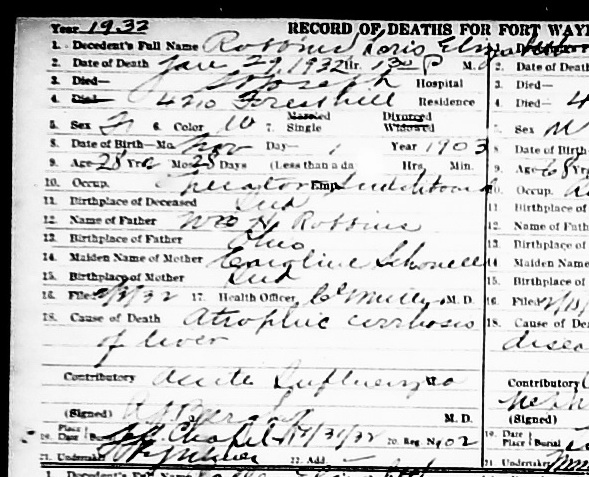 Year 1932 RECORD OF DEATHS FOR FORT WAY
1. Decedent's Full Name Robbins Loris Eliz
2. Date of Death Jan 29, 1932 Hr. 130 P M. 2. Date of Death
3. Died— St Joseph Hospital 3. Died—
4. Died— 4210 Residence 4. Died— 4
5. Sex 6. Color W 7. Married Single Divorced Widowed 5. Sex M
8. Date of Birth—Mo. Nov Day— 1 Year 1903 8. Date of Birth
9. Age 28 Yrs 2 Mos 28 Days (Less than a da Hrs. Min. 9. Age 68 Yrs
10. Occup. Operator Emp. Switchboard 10. Occup.
11. Birthplace of Deceased Ind 11. Birthplace of
12. Name of Father Wm H. Robbins 12. Name of Fath
13. Birthplace of Father Ohio 13. Birthplace of
14. Maiden Name of Mother Caroline 14. Maiden Name
15. Birthplace of Mother Ind 15. Birthplace of
16. Filed 2/2/32 17. Health Officer M. D. 16. Filed
18. Cause of Death Atrophic cirrhosis 18. Cause of Dea
of liver disea
Contributory Acute Influenza Contributory
(Signed) M. D. (Signed)
19. Place Date Burial Chapel 1/31/32 20. Reg. No 02 19. Date Place Burial
21. Undertaker 22. Add 21. Undertaker
1. Decedent's Full Name